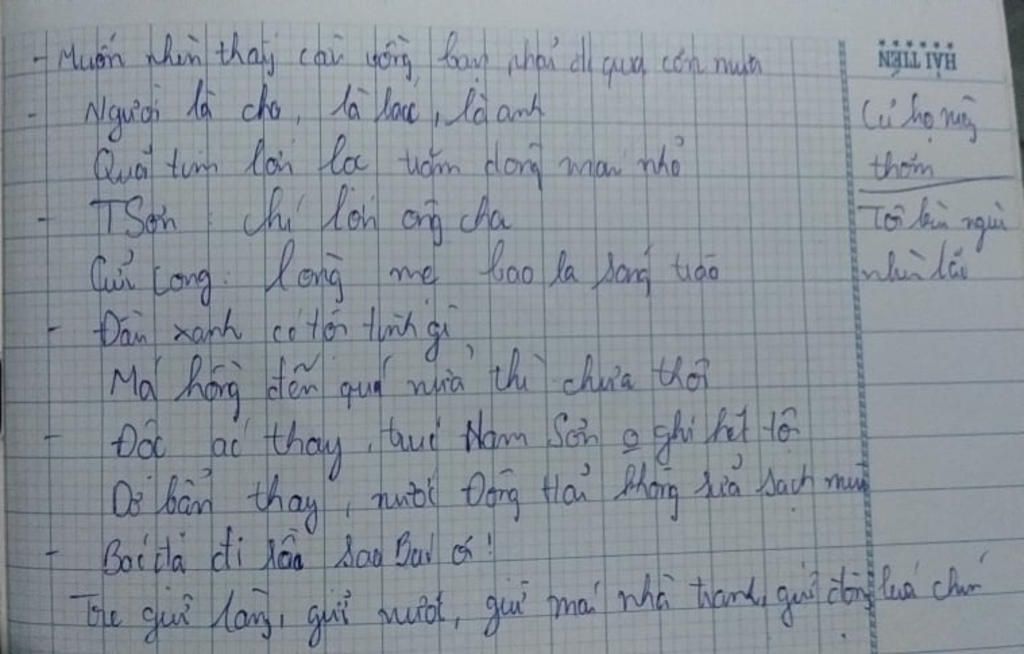 - Muốn nhìn thấy cầu vồng, bạn phải đi qua cơn mưa
- Người là cha, là bác, là anh
Quả tim lớn lọc trăm dòng máu nhỏ
- TSơn : chí lớn ông cha
Cửu Long : lòng mẹ bao la sóng trào
- Đầu xanh có tội tình gì
Má hồng đến quá nửa thì chưa thôi
- Độc ác thay, trúc Nam Sơn ghi hết tội
Dơ bẩn thay, nước Đông Hải không rửa sạch mùi
- Bác đã đi rồi sao Bác ơi!
Tre giữ làng, giữ nước, giữ mái nhà tranh, giữ đồng lúa chín
HẢI TIẾN
thơm